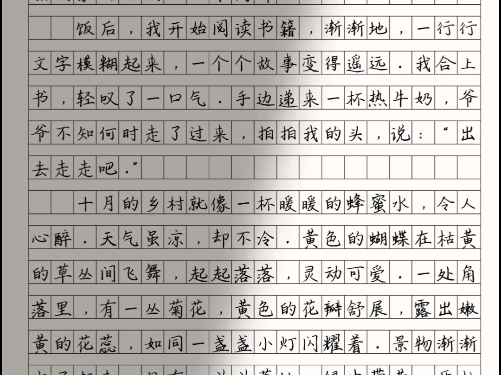 饭后，我开始阅读书籍，渐渐地，一行行
文字模糊起来，一个个故事变得遥远．我合上
书，轻叹了一口气．手边递来一杯热牛奶，爷
爷不知何时走了过来，拍拍我的头，说：“出
去走走吧．”
十月的乡村就像一杯暖暖的蜂蜜水，令人
心醉．天气虽凉，却不冷．黄色的蝴蝶在枯黄
的草丛间飞舞，起起落落，灵动可爱．一处角
落里，有一丛菊花，黄色的花瓣舒展，露出嫩
黄的花蕊，如同一盏盏小灯闪耀着．景物渐渐